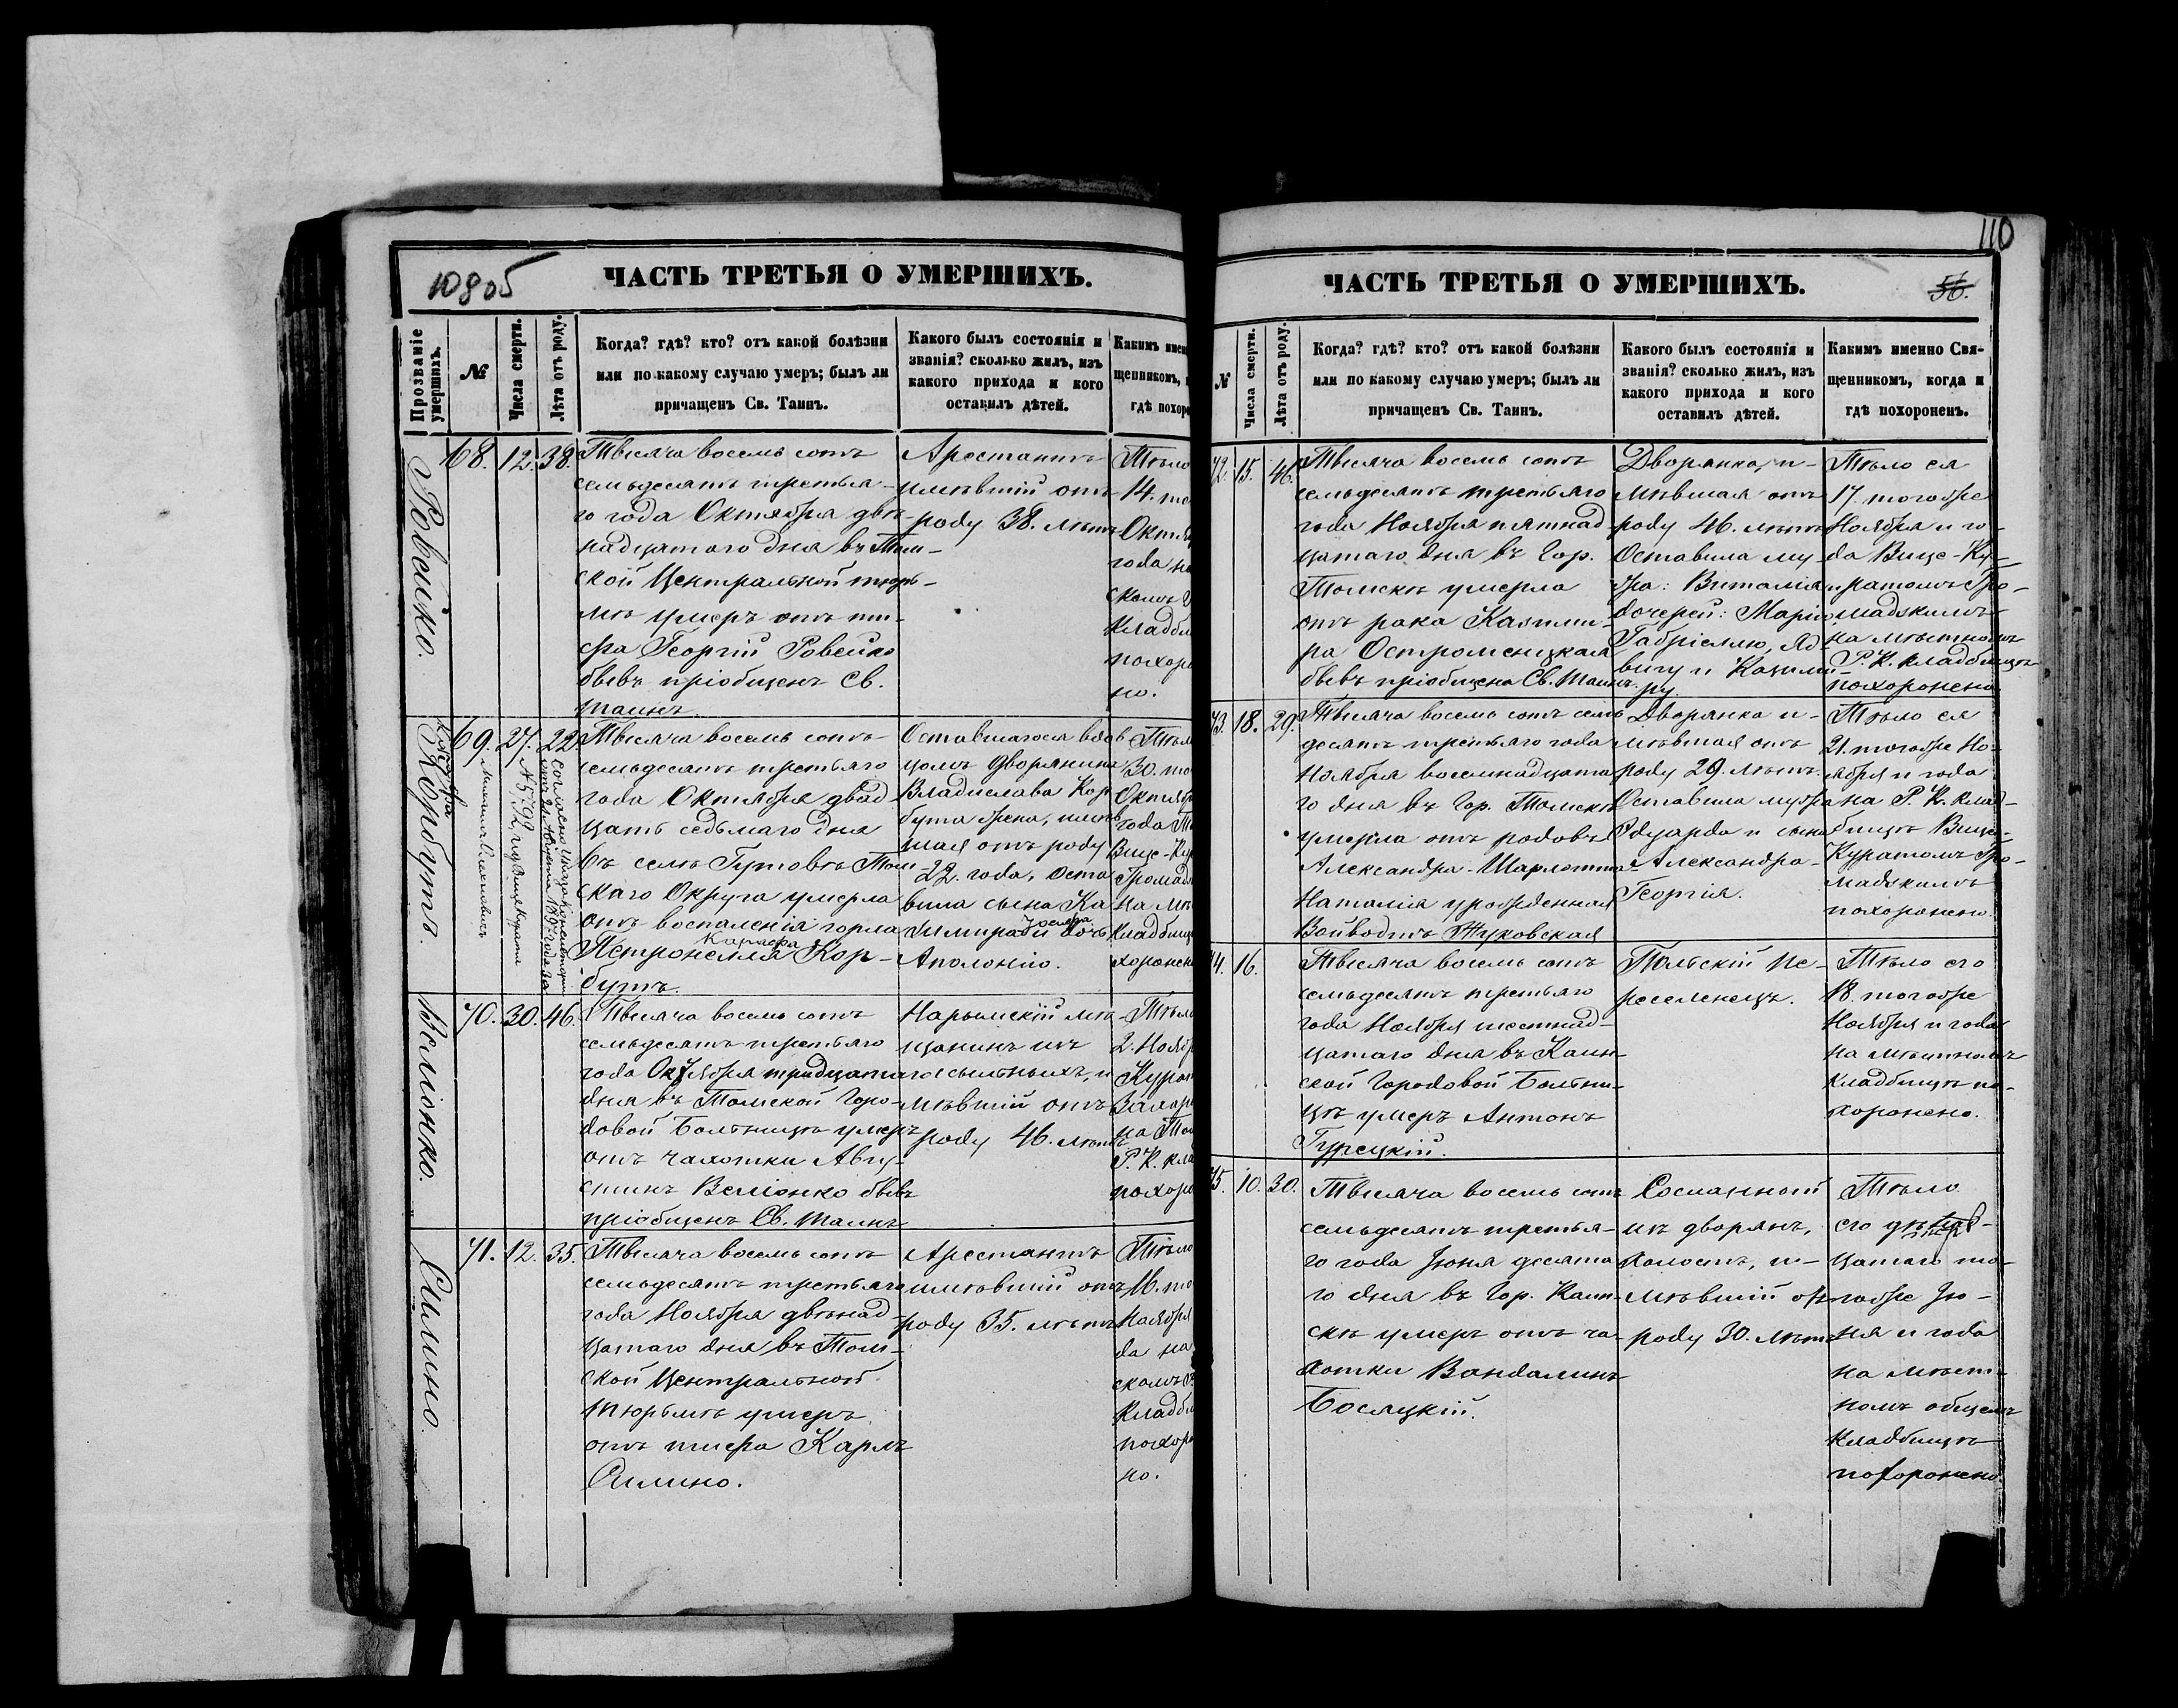 108об
ЧАСТЬ ТРЕТЬЯ О УМЕРШИХЪ.
Прозваніе умершихъ.
№
Числа смерти.
Лѣта отъ роду.
Когда? гдѣ? кто? отъ какой болѣзни
или по какому случаю умеръ; былъ ли
причащенъ Св. Таинъ.
Какого былъ состоянія и
званія? сколько жилъ, изъ
какого прихода и кого
оставилъ дѣтей.
Какимъ имен
щенникомъ,
гдѣ похоро
Ровейко.
68. 12. 38.
Тысяча восемь сотъ
семьдесятъ третья-
го года Октября двѣ-
надцатаго дня въ Том-
ской Центральной тюрь-
мѣ умеръ отъ ти-
фа Георгій Ровейко
бывъ пріобщенъ Св.
Таинъ.
Арестантъ
имѣвшій отъ
роду 38. лѣтъ
Тѣло
14. то
Октяб
года на
скомъ
кладби
похоро
но.
Корбутъ.
69. 27. 22.
Тысяча восемь сотъ
семьдесятъ третьяго
года Октября двад-
цать седьмаго дня
въ селѣ Гутовѣ Том
скаго Округа умерла
отъ воспаленія горла
Петронелля Кор-
бутъ.
Оставшагося вдов
цомъ дворянина
Владислава Кор
бута жена, имѣв
шая отъ роду
22. года, оста
вила сына Ка
зимира и дочь
Аполонію.
Тѣло
30. то
Октябр
года То
Вице-Ку
Громад
на мѣ
кладбищ
хоронен
Веліонко.
70. 30. 46.
Тысяча восемь сотъ
семьдесятъ третьяго
года Октября тридцата
дня въ Томской Горо-
довой Больницѣ умеръ
отъ чахотки Авгу-
стинъ Веліонко бывъ
пріобщенъ Св. Таинъ
Нарымскій мѣ-
щанинъ изъ
ссыльныхъ, и
мѣвшій отъ
роду 46. лѣтъ
Тѣло
2. Нояб
Курат
Захар
на Том
Р. К. кла
похоро
Силино.
71. 12. 35.
Тысяча восемь сотъ
семьдесятъ третьяго
года Ноября двѣнад
цатаго дня въ Том-
ской Центральной
тюрьмѣ умеръ
отъ тифа Карлъ
Силино.
Арестантъ
имѣвшій отъ
роду 35. лѣтъ
Тѣло
16. то
Ноября
да на
скомъ
кладби
похоро
но.
110
ЧАСТЬ ТРЕТЬЯ О УМЕРШИХЪ.
56.
№
Числа смерти.
Лѣта отъ роду.
Когда? гдѣ? кто? отъ какой болѣзни
или по какому случаю умеръ; былъ ли
причащенъ Св. Таинъ.
Какого былъ состоянія и
званія? сколько жилъ, изъ
какого прихода и кого
оставилъ дѣтей.
Какимъ именно Свя-
щенникомъ, когда и
гдѣ похороненъ.
72. 15. 46.
Тысяча восемь сотъ
семьдесятъ третьяго
года Ноября пятнад
цатаго дня въ Гор.
Томскѣ умерла
отъ рака Казими-
ра Остроменцкая
бывъ пріобщена Св. Таинъ.
Дворянка, и-
мѣвшая отъ
роду 46. лѣтъ
Оставила му-
жа: Виталія и
дочерей: Марію
Габріелію, Яд-
вигу и Казими-
ру.
Тѣло ея
17. тогоже
Ноября и го-
да Вице-Ку-
ратомъ Гро-
мадскимъ
на мѣстномъ
Р. К. кладбищѣ
похоронено
73. 18. 29.
Тысяча восемь сотъ семь
десятъ третьяго года
Ноября восемнадцата
го дня въ Гор. Томскѣ
умерла отъ родовъ
Александра-Шарлотта-
Наталія урожденная
Войводтъ Жуковская
Дворянка и-
мѣвшая отъ
роду 29. лѣтъ.
Оставила мужа
Эдуарда и сына
Александра-
Георгія.
Тѣло ея
21. тогоже Но-
ября и года
на Р. К. клад-
бищѣ Вице-
Куратомъ Гро-
мадскимъ
похоронено.
74. 16.
Тысяча восемь сотъ
семьдесятъ третьяго
года Ноября шестнад-
цатаго дня въ Каин-
ской Городовой Больни-
цѣ умеръ Антонъ
Гурецкій.
Польскій пе-
реселенецъ.
Тѣло его
18. тогоже
Ноября и года
на мѣстномъ
кладбищѣ по-
хоронено.
75. 10. 30.
Тысяча восемь сотъ
семьдесятъ третья-
го года Іюня десята
го дня въ Гор. Каин-
скѣ умеръ отъ ча-
хотки Вандалинъ
Босяцкій.
Сосланный
изъ дворянъ,
холостъ, и-
мѣвшій отъ
роду 30. лѣтъ
Тѣло
его двѣнад-
цатаго то-
гоже Ію-
ня и года
на мѣст-
номъ общемъ
кладбищѣ
похоронено.